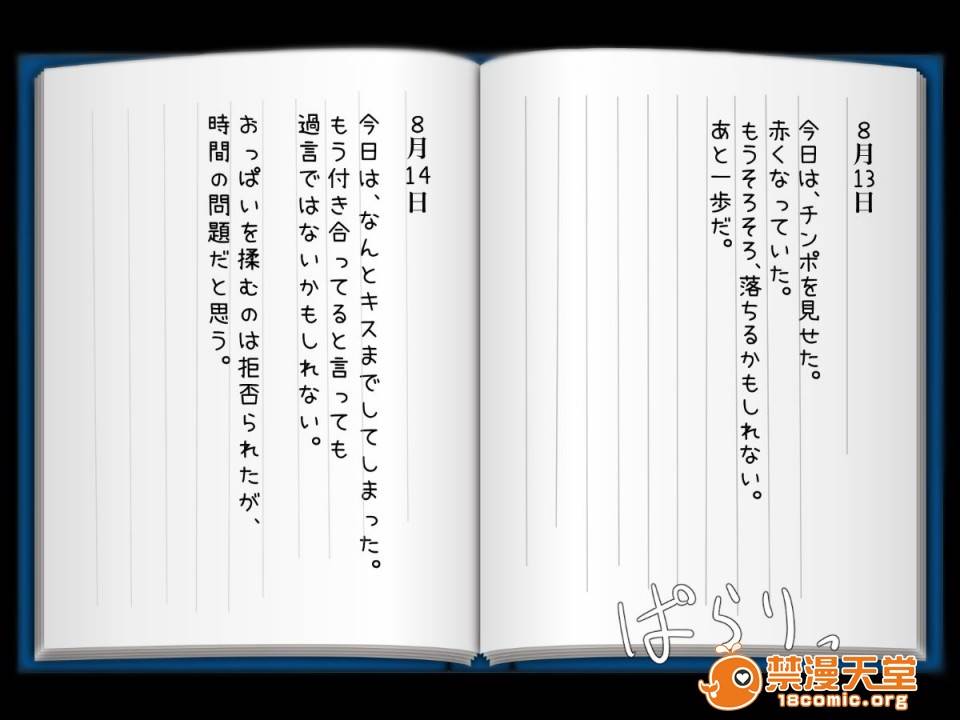 8月13日
今日は、チンポを見せた。
赤くなっていた。
もうそろそろ、落ちるかもしれない。
あと一歩だ。
8月14日
今日は、なんとキスまでしてしまった。
もう付き合ってると言っても
過言ではないかもしれない。
おっぱいを揉むのは拒否られたが、
時間の問題だと思う。
ぱらりっ
禁漫天堂
18comic.org